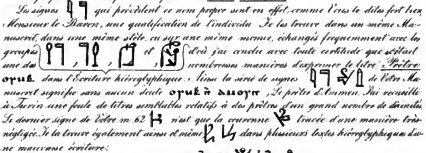 Les signes qui précèdent ce nom propre sont en effet, comme Vous le dites fort bien
Monsieur le Baron, une qualification de l'individu. Je les trouve dans un même Ma-
nuscrit, dans une même stèle, ou sur une même momie, échangés frequemment avec les
groupes et d'où j'ai conclu avec toute certitude que c'était
une des nombreuses manières d'exprimer le titre Prêtre
dans l'Ecriture hiéroglyphique. Ainsi la série de signes de Vôtre Ma-
nuscrit signifie sans aucun doute Le prêtre d'Ammon. J'ai recueilli
à Turin une foule de titres semblables relatifs à des prêtres d'un grand nombre de divinités
Le dernier signe de Vôtre n. 62 n'est que la couronne tracée d'une manière très-
négligée. Je la trouve également ainsi et même dans plusieurs textes hiéroglyphiques d'u-
ne mauvaise écriture: